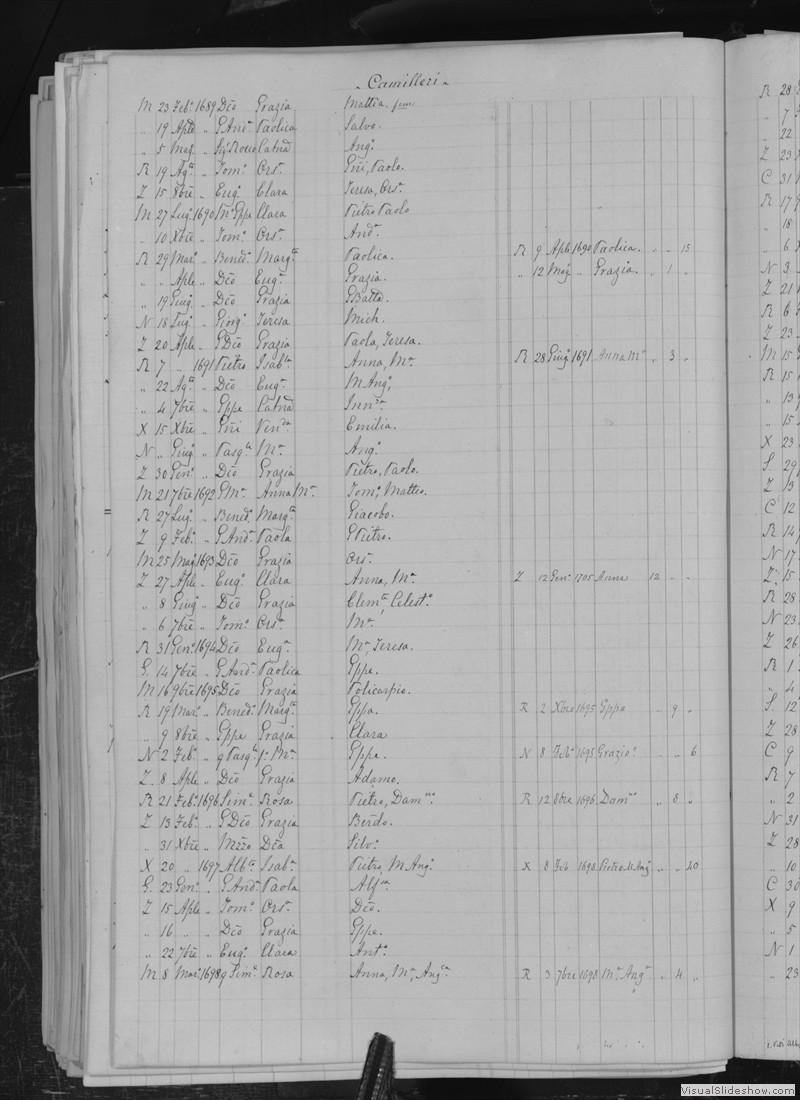 Camilleri
M 23 Feb.º 1689 Dẽo Grazia Mattia fem.
„ 19 Aple „ G And.ª Paolica Salvo.
„ 5 Mag. „ Catnã Ang.º
R 19 Ag.to „ Tom.º Ors.ª Gñi, Paolo.
Z 15 8bre „ Eug.º Clara Teresa, Ors.ª
M 27 Lug.º 1690 M.º Gppe Clara Pietro Paolo
„ 10 Xbre „ Tom.º Ors.ª And.ª
R 29 Mar.º „ Bened.º Marg.ta Paolica. R 9 Aple 1690 Paolica. „ „ 15
„ „ Aple „ Dẽo Eug.ª Grazia. „ 12 Mag. „ Grazia. „ 1 „
„ 19 Giug.º „ Dẽo Grazia GBatta.
N 18 Lug.º „ Giorg.º Teresa Mich.
Z 20 Aple „ G Dẽo Grazia Paola, Teresa.
R 7 „ 1691 Pietro Isab.la Anna, M.ª R 28 Giug.º 1691 Anna M.ª „ 3 „
„ 22 Ag.to „ Dẽo Eug.ª M Ang.º
„ 4 7bre „ Gppe Catnã Inn.za
X 15 Xbre „ Gñi Ven.da Emilia.
N „ Giug.º „ Pasq.le M.ª Ang.º
Z 30 Gen.º „ Dẽo Grazia Pietro, Paolo.
M 21 7bre 1692 G M.ª Anna M.ª Tom.º Matteo.
R 27 Lug.º „ Bened.º Marg.ta Giacobo.
Z 9 Feb.º „ G And.ª Paola G Pietro.
M 25 Mag. 1693 Dẽo Grazia Ors.ª
Z 27 Aple „ Eug.º Clara Anna, M.ª Z 12 Gen.º 1705 Anna 12 „ „
„ 8 Giug.º „ Dẽo Grazia Clem.te, Celest.º
„ 6 7bre „ Tom.º Ors.ª M.ª
R 31 Gen.º 1694 Dẽo Eug.ª M.ª, Teresa.
G. 14 7bre „ G And.ª Paolica Gppe.
M 16 9bre 1695 Dẽo Grazia Policarpio.
R 19 Mar.º „ Bened.º Marg.ta Gppa. R 2 Xbre 1695 Gppa „ 9 „
„ 9 8bre „ Gppe Grazia Clara
N 2 Feb.º „ q Pasq.le M.ª Gppe. N 8 Feb.º 1695 Grazio.º „ „ 6
Z. 8 Aple „ Dẽo Grazia Adamo.
R 21 Feb.º 1696 Sim.e Rosa Pietro, Dam.no R 12 8bre 1696 Dam.no „ 8 „
Z 13 Feb.º „ G Dẽo Grazia Berdo.
„ 31 Xbre „ Mzzo Dẽa Silv.º
X 20 „ 1697 Alb.to Isab.la Pietro, M Ang.º X 8 Feb 1698 Pietro M Ang.º „ „ 40
G. 23 Gen.º „ G And.ª Paola Alf.sa
Z 15 Aple „ Tom.º Ors.ª Dẽo.
„ 16 „ „ Dẽo Grazia Gppe.
„ 22 7bre „ Eug.º Clara Ant.º
M 8 Mar.º 1698 q Sim.e Rosa Anna, M.ª, Ang.ca R 3 7bre 1698 M.ª Ang.ª „ 4 „
R 28
„ 7
„ 22
Z 23
C 31
R 17
„ 18
„ 6
N 3
Z 21
R 6
Z 23
M 15
R 15
„ 13
„ 15
X 23
S 29
Z 3
C 12
R 14
N 17
Z 15
R 28
N 23
Z 26
R 1
„ 4
S 12
Z 28
C 9
R 7
„ 2
N 31
Z 28
„ 10
C 30
X 9
„ 5
N 1
„ 23
VisualSlideshow.com